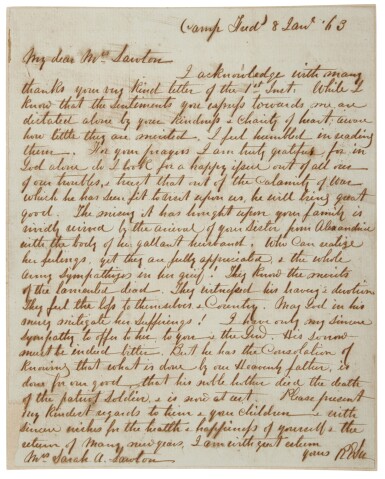 Camp Fredg 8 Jany '63
My dear Mrs Lawton
I acknowledge with many
thanks your very kind letter of the 1st Inst. While I
know that the sentiments you express towards me, are
dictated alone by your kindness & charity of heart, aware
how little they are merited. I feel humbled in reading
them. For your prayers I am truly grateful, for in
God alone do I look for a happy issue out of all
of our troubles, & trust that out of the calamity of war
which he has seen fit to rest upon us, he will bring great
good. The misery it has brought upon your family is
vividly by the arrival of your Sister from Alexandria
with the body of her gallant husband. Who can realize
her feelings. yet they are fully appreciated, & the whole
Army Sympathizes in her grief! They know the merits
of the lamented dead. They witnessed his devotion
They feel the loss to themselves & Country. May God in his
mercy mitigate her Sufferings! I have only my Sincere
Sympathy to offer to her, to you & the . His sorrow
must be indeed bitter. But he has the Consolation of
Knowing that what is done by our Heavenly father, is
done for our good, that his noble died the death
of the patriot Soldier, & is now at rest. Please present
my kindest regards to them & your Children & with
sincere wishes for the health & happiness of yourself & the
return of Many new years, I am with great esteem
Mrs Sarah A. Lawton yours RELee